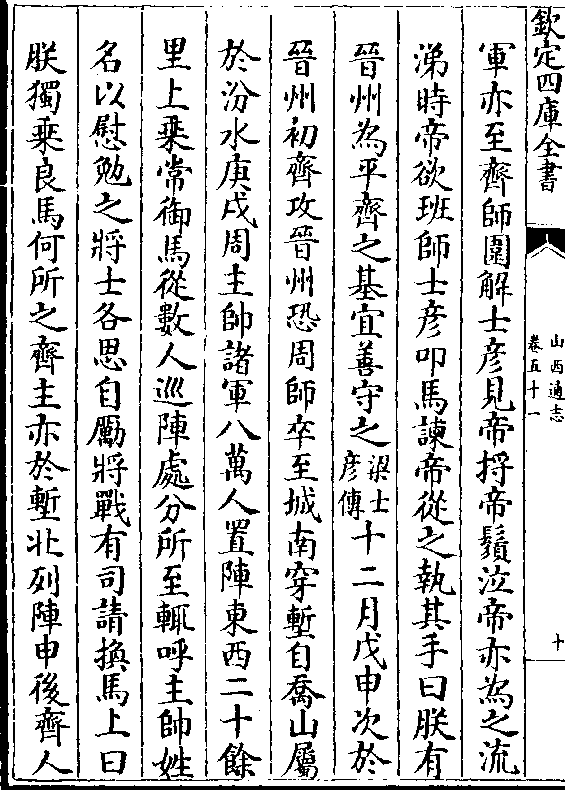 欽定四庫全書
山西通志
卷五十一
十
軍亦至齊師圍解士彥見帝捋帝鬚泣帝亦為之流
涕時帝欲班師士彥叩馬諫帝從之執其手曰朕有
晉州為平齊之基宜善守之梁士彥傳十二月戊申次於
晉州初齊攻晉州恐周師卒至城南穿塹自喬山屬
於汾水庚戌周主帥諸軍八萬人置陣東西二十餘
里上乘常御馬從數人巡陣處分所至輒呼主帥姓
名以慰勉之將士各思自厲將戰有司請換馬上曰
朕獨乘良馬何所之齊主亦於塹北列陣申後齊人